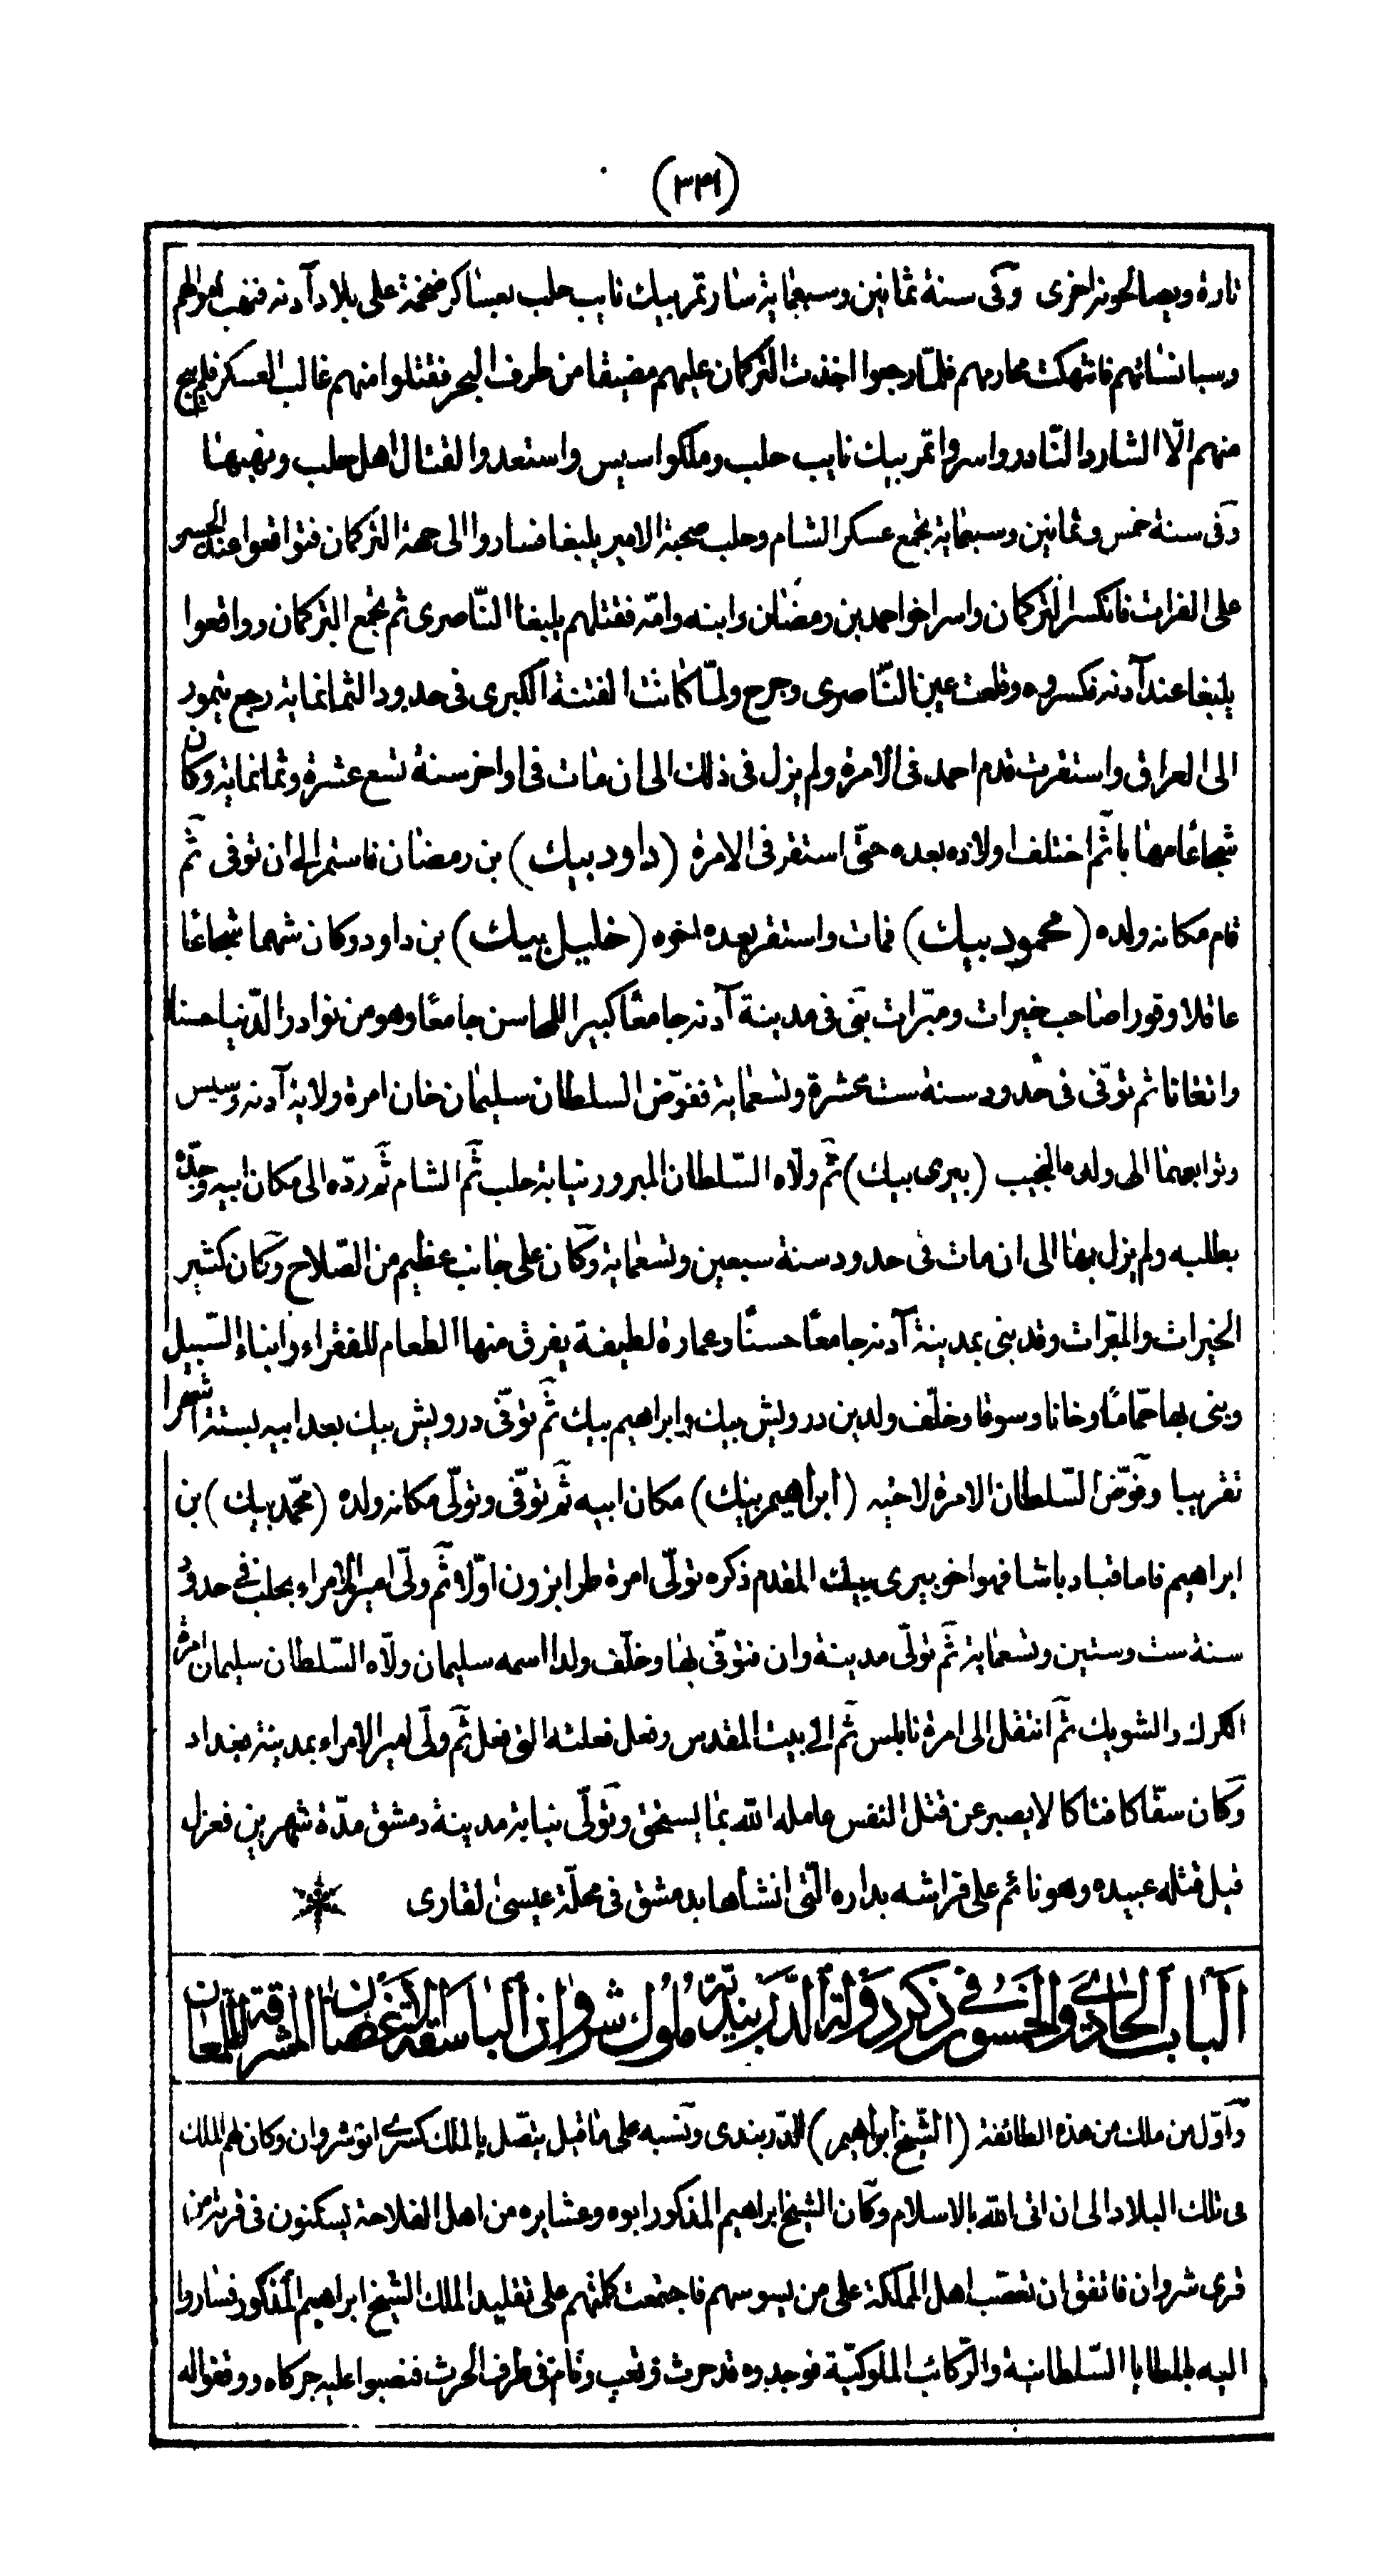 (٣٤١)
تارة ويصالحونه اخرى وفى سنة ثمانين وسبعمائة سار تمربيك نايب حلب بعساكر ضخمة على بلاد آدنه فنهب اموالهم
وسبا نسائهم فانتهكت محارمهم فلمّا رجعوا اخذت التركمان عليهم مضيقا من طرف البحر فقتلوا منهم غالب العسكر فلم ينج
منهم الّا الشارد النّادر واسروا تمربيك نايب حلب وملكوا سيس واستعدوا لقتال اهل حلب ونهبها
وفى سنة خمس وثمانين وسبعمائة تجمع عسكر الشام وحلب صحبة الامير يلبغا فساروا الى جهة التركمان فتواقعوا عند الجسر
على الفرات فانكسر التركمان واسر اخو احمد بن رمضان وابنه وامّه فقتلهم يلبغا النّاصرى ثم تجمع التركمان وواقعوا
يلبغا عند آدنه فكسروه وقلعت عين النّاصرى وجرح ولمّا كانت الفتنة الكبرى فى حدود الثمانمائة رجع تيمور
الى العراق واستقرت قدم احمد فى الامرة ولم يزل فى ذلك الى ان مات فى اواخر سنة تسع عشرة وثمانمائة وكان
شجاعًا مهابا ثّم اختلف اولاده بعده حتّى استقر فى الامرة (داود بيك) بن رمضان فاستمر الى ان توفى ثّم
قام مكانه ولده (محمود بيك) فمات واستقر بعده اخوه (خليل بيك) بن داود وكان شهما شجاعًا
عاقلا وقورا صاحب خيرات ومبّرات بنى فى مدينة آدنه جامعًا كبيرا للمحاسن جامعًا وهو من نوادر الدّنيا حسنا
واتقانا ثم توفّى فى حدود سنة ست عشرة وتسعمائة ففوّض السلطان سليمان خان امرة ولاية آدنه وسيس
وتوابعهما الى ولده النجيب (بيرى بيك) ثّم ولّاه السّلطان المبرور نيابة حلب ثّم الشام ثّم ردّه الى مكان ابيه وجدّه
بطلبه ولم يزل بها الى ان مات فى حدود سنة سبعين وتسعمائة وكان على جانب عظيم من الصّلاح وكان كثير
الخيرات والمبّرات وقد بنى بمدينة آدنه جامعًا حسنًا وعمارة لطيفة يفرق منها الطعام للفقراء وابناء السّبيل
وبنى بها حمّامًا وخانا وسوقا وخلّف ولدين درويش بيك وابراهيم بيك ثّم توفّى درويش بيك بعد ابيه بستة اشهرا
تقريبا وفوّض السّلطان الامرة لاخيه (ابراهيم بيك) مكان ابيه ثّم توفّى وتولّى مكانه ولده (محّمد بيك) بن
ابراهيم فاما قباد باشا فهو اخو بيرى بيك المقدم ذكره تولّى امرة طرابزون اوّلا ثّم ولّى امير الامراء بحلب فى حدود
سنة ست وستين وتسعمائة ثّم تولّى مدينة وان فتوفّى بها وخلّف ولدا اسمه سليمان ولّاه السّلطان سليمان امرة
الكرك والشوبك ثّم انتقل الى امرة نابلس ثّم الى بيت المقدس وفعل فعلته التى فعل ثّم ولّى امير الامراء بمدينة بغداد
وكان سفّاكا فتاكا لا يصبر عن قتل النفس عامله الله بما يستحق وتولّى نيابة مدينة دمشق مدّة شهرين فعزل
قبل قتله عبيده وهو نائم على فراشه بداره الّتى انشأها بدمشق فى محلّة عيسى القارى
الباب الحادى والخمسون فى ذكر دولة الدربندية ملوك شروان الباسقة الاغصان المشرقة اللمعان
واوّل من ملك من هذه الطائفة (الشّيخ ابراهيم) الدّربندى ونسبه على ما قيل يتّصل بالملك كسرى انوشروان وكان لهم الملك
فى تلك البلاد الى ان اتى الله بالاسلام وكان الشيخ ابراهيم المذكور ابوه وعشايره من اهل الفلاحة يسكنون فى قرية من
قرى شروان فاتفق ان تعصّب اهل المملكة على من يسوسهم فاجتمعت كلمتهم على تقليد الملك الشيخ ابراهيم المذكور فساروا
اليه بالمطايا السّلطانية والرّكائب الملوكيّة فوجدوه قد حرث وتعب ونام فى طرف الحرث فنصبوا عليه جركاه ووقفوا له